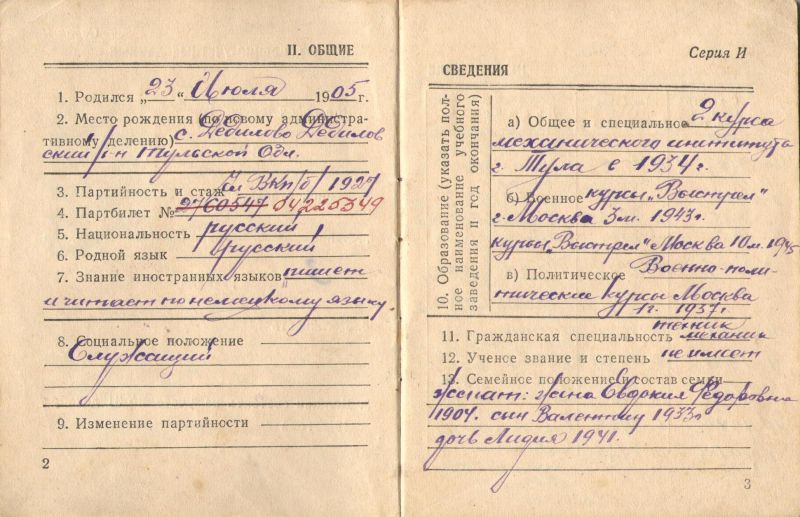 II. ОБЩИЕ
1. Родился „23“ Июля 1905 г.
2. Место рождения (по новому администра-
тивному делению) с. Дедилово Дедилов
ский р-н Тульской Обл.
3. Партийность и стаж Чл ВКП/б/ 1927
4. Партбилет № 2760547 04225349
5. Национальность русский
6. Родной язык русский
7. Знание иностранных языков пишет
и читает по немецкому языку.
8. Социальное положение
Служащий
9. Изменение партийности
2
Серия И
СВЕДЕНИЯ
10. Образование (указать пол-
ное наименование учебного
заведения и год окончания)
а) Общее и специальное 2 курса
механического института
г. Тула в 1934 г.
б) Военное курсы „Выстрел“
г. Москва 3 м. 1943 г.
курсы „Выстрел“ Москва 10 м. 1945
в) Политическое Военно-поли-
тические курсы Москва
1 г. 1937 г.
техник
11. Гражданская специальность механик
12. Ученое звание и степень не имеет
13. Семейное положение и состав семьи
Женат: жена Евдокия Федоровна
1904. сын Валентин 1933 г
дочь Лидия 1941.
3